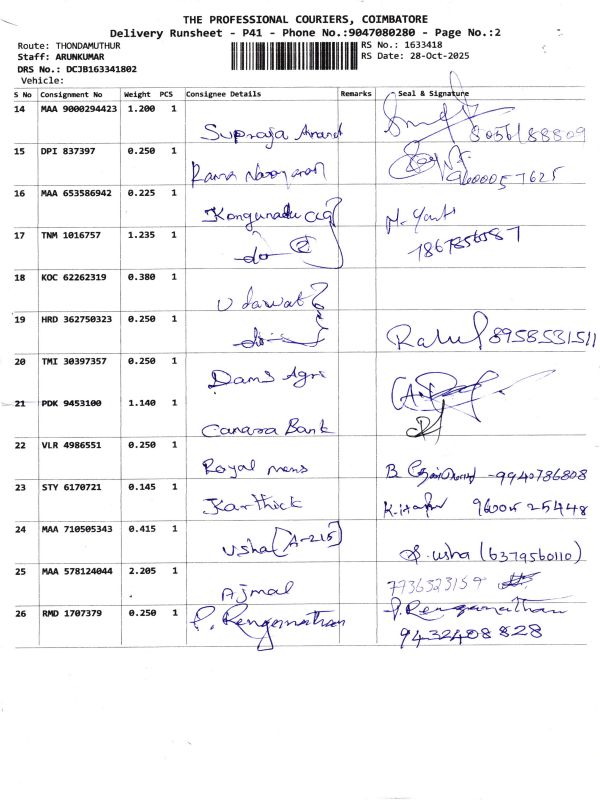 THE PROFESSIONAL COURIERS, COIMBATORE
Delivery Runsheet - P41 - Phone No.:9047080280 - Page No.:2
Route: THONDAMUTHUR RS No.: 1633418
Staff: ARUNKUMAR RS Date: 28-Oct-2025
DRS No.: DCJB163341802
Vehicle:
S No Consignment No Weight PCS Consignee Details Remarks Seal & Signature
14 MAA 9000294423 1.200 1
Supraja Anand 8056188809
15 DPI 837397 0.250 1
Rama Narayanan 9600057625
16 MAA 653586942 0.225 1
Kongunadu clg
17 TNM 1016757 1.235 1
do
18 KOC 62262319 0.380 1
19 HRD 362750323 0.250 1
do Rahul 8958531511
20 TMI 30397357 0.250 1
Dams Agri
21 PDK 9453100 1.140 1
Canara Bank
22 VLR 4986551 0.250 1
Royal mens B -9940786808
23 STY 6170721 0.145 1
Karthick 9600525448
24 MAA 710505343 0.415 1
Usha (A-215) S. usha (6379560110)
25 MAA 578124044 2.205 1
Ajmal 7736523159
26 RMD 1707379 0.250 1
P. Renganathan P. Renganathan
9432408828